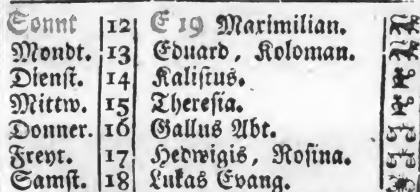 Sonnt 12 E 19 Maximilian.
Mondt. 13 Eduard, Koloman.
Dienst. 14 Kalistus.
Mittw. 15 Theresia.
Donner. 16 Gallus Abt.
Freyt. 17 Hedwigis, Rosina.
Samst. 18 Lukas Evang.